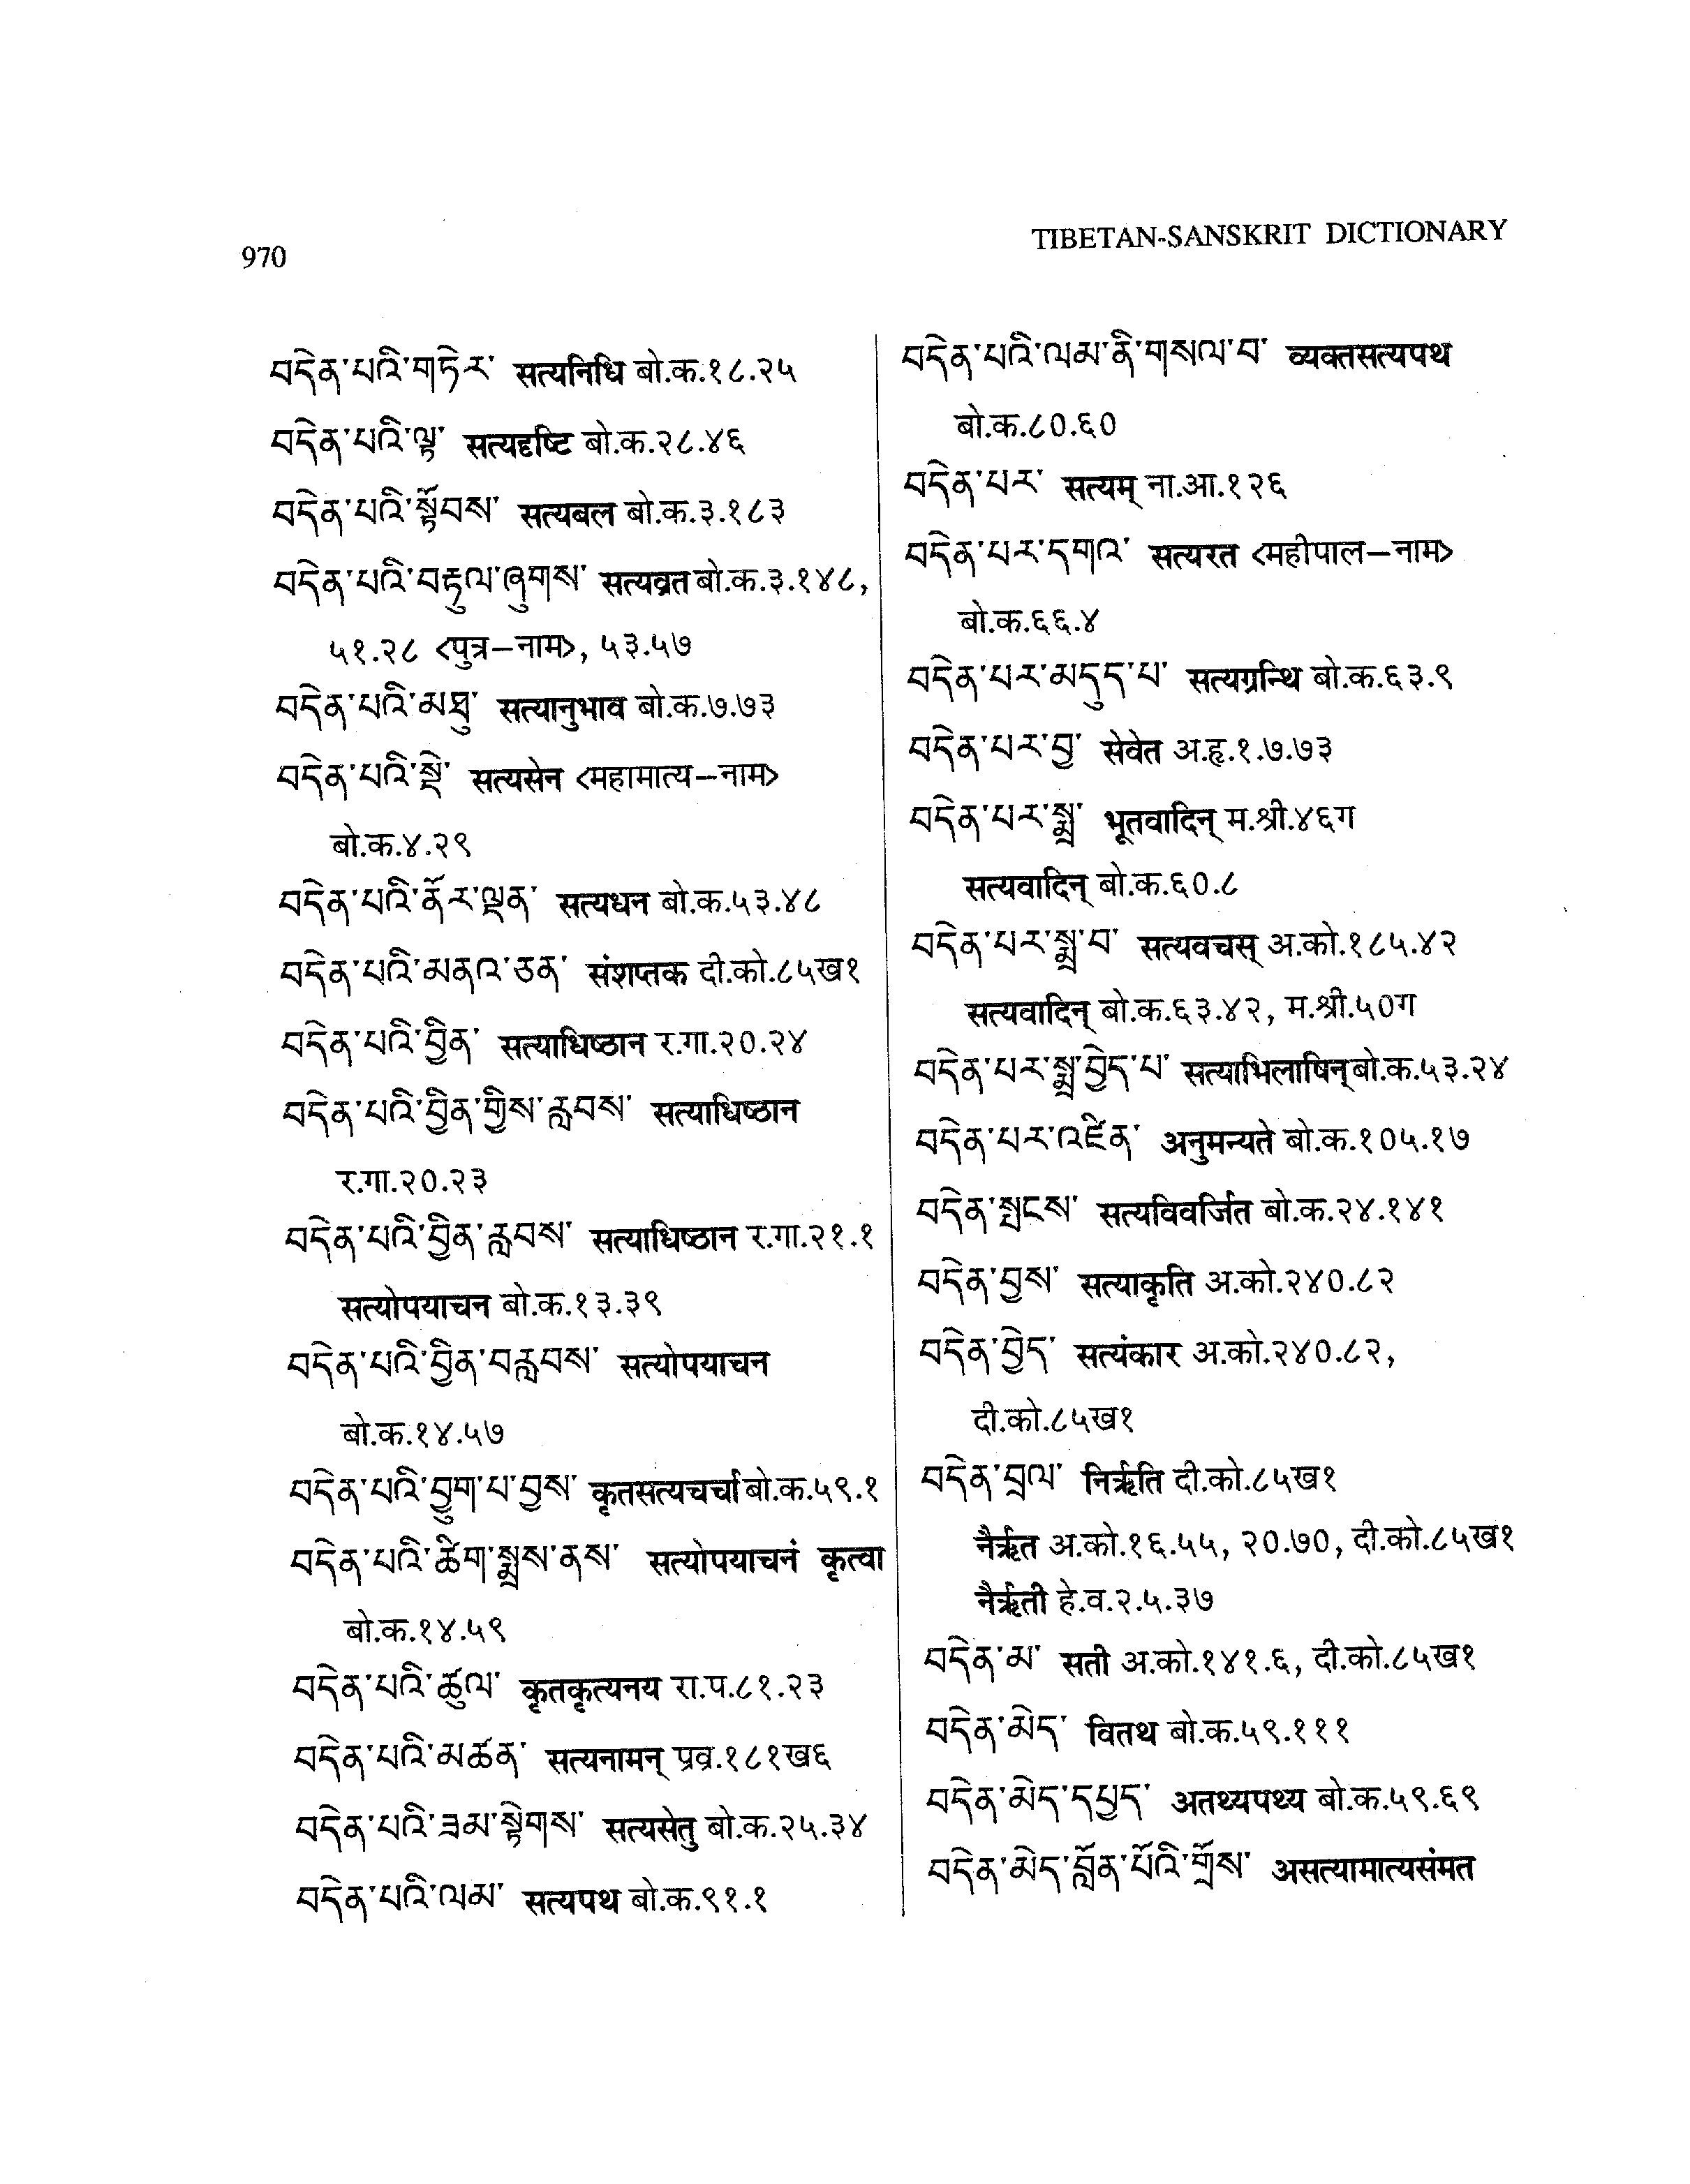 970
TIBETAN-SANSKRIT DICTIONARY
བདེན་པའི་གཏེར་ सत्यनिधि बो.क.१८.२५
བདེན་པའི་ལྟ་ सत्यदृष्टि बो.क.२८.४६
བདེན་པའི་སྟོབས་ सत्यबल बो.क.३.१८३
བདེན་པའི་བརྟུལ་ཞུགས་ सत्यव्रत बो.क.३.१४८,
५१.२८ <पुत्र–नाम>, ५३.५७
བདེན་པའི་མཐུ་ सत्यानुभाव बो.क.७.७३
བདེན་པའི་སྡེ་ सत्यसेन <महामात्य–नाम>
बो.क.४.२९
བདེན་པའི་ནོར་ལྡན་ सत्यधन बो.क.५३.४८
བདེན་པའི་མནའ་ཅན་ संशप्तक दी.को.८५ख१
བདེན་པའི་བྱིན་ सत्याधिष्ठान र.गा.२०.२४
བདེན་པའི་བྱིན་གྱིས་རླབས་ सत्याधिष्ठान
र.गा.२०.२३
བདེན་པའི་བྱིན་རླབས་ सत्याधिष्ठान र.गा.२१.१
सत्योपयाचन बो.क.१३.३९
བདེན་པའི་བྱིན་བརླབས་ सत्योपयाचन
बो.क.१४.५७
བདེན་པའི་བྱུག་པ་བྱས་ कृतसत्यचर्चा बो.क.५९.१
བདེན་པའི་ཚིག་སྨྲས་ནས་ सत्योपयाचनं कृत्वा
बो.क.१४.५९
བདེན་པའི་ཚུལ་ कृतकृत्यनय रा.प.८१.२३
བདེན་པའི་མཚན་ सत्यनामन् प्रव्र.१८१ख६
བདེན་པའི་ཟམ་སྟེགས་ सत्यसेतु बो.क.२५.३४
བདེན་པའི་ལམ་ सत्यपथ बो.क.९१.१
བདེན་པའི་ལམ་ནི་གསལ་བ་ व्यक्तसत्यपथ
बो.क.८०.६०
བདེན་པར་ सत्यम् ना.आ.१२६
བདེན་པར་དགའ་ सत्यरत <महीपाल–नाम>
बो.क.६६.४
བདེན་པར་མདུད་པ་ सत्यग्रन्थि बो.क.६३.९
བདེན་པར་བྱ་ सेवेत अ.हृ.१.७.७३
བདེན་པར་སྨྲ་ भूतवादिन् म.श्री.४६ग
सत्यवादिन् बो.क.६०.८
བདེན་པར་སྨྲ་བ་ सत्यवचस् अ.को.१८५.४२
सत्यवादिन् बो.क.६३.४२, म.श्री.५०ग
བདེན་པར་སྨྲ་བྱེད་པ་ सत्याभिलाषिन् बो.क.५३.२४
བདེན་པར་འཛིན་ अनुमन्यते बो.क.१०५.१७
བདེན་སྤངས་ सत्यविवर्जित बो.क.२४.१४१
བདེན་བྱས་ सत्याकृति अ.को.२४०.८२
བདེན་བྱེད་ सत्यंकार अ.को.२४०.८२,
दी.को.८५ख१
བདེན་བྲལ་ निर्ऋति दी.को.८५ख१
नैर्ऋत अ.को.१६.५५, २०.७०, दी.को.८५ख१
नैर्ऋती हे.व.२.५.३७
བདེན་མ་ सती अ.को.१४१.६, दी.को.८५ख१
བདེན་མེད་ वितथ बो.क.५९.१११
བདེན་མེད་དཔྱད་ अतथ्यपथ्य बो.क.५९.६९
བདེན་མེད་བློན་པོའི་གྲོས་ असत्यामात्यसंमत